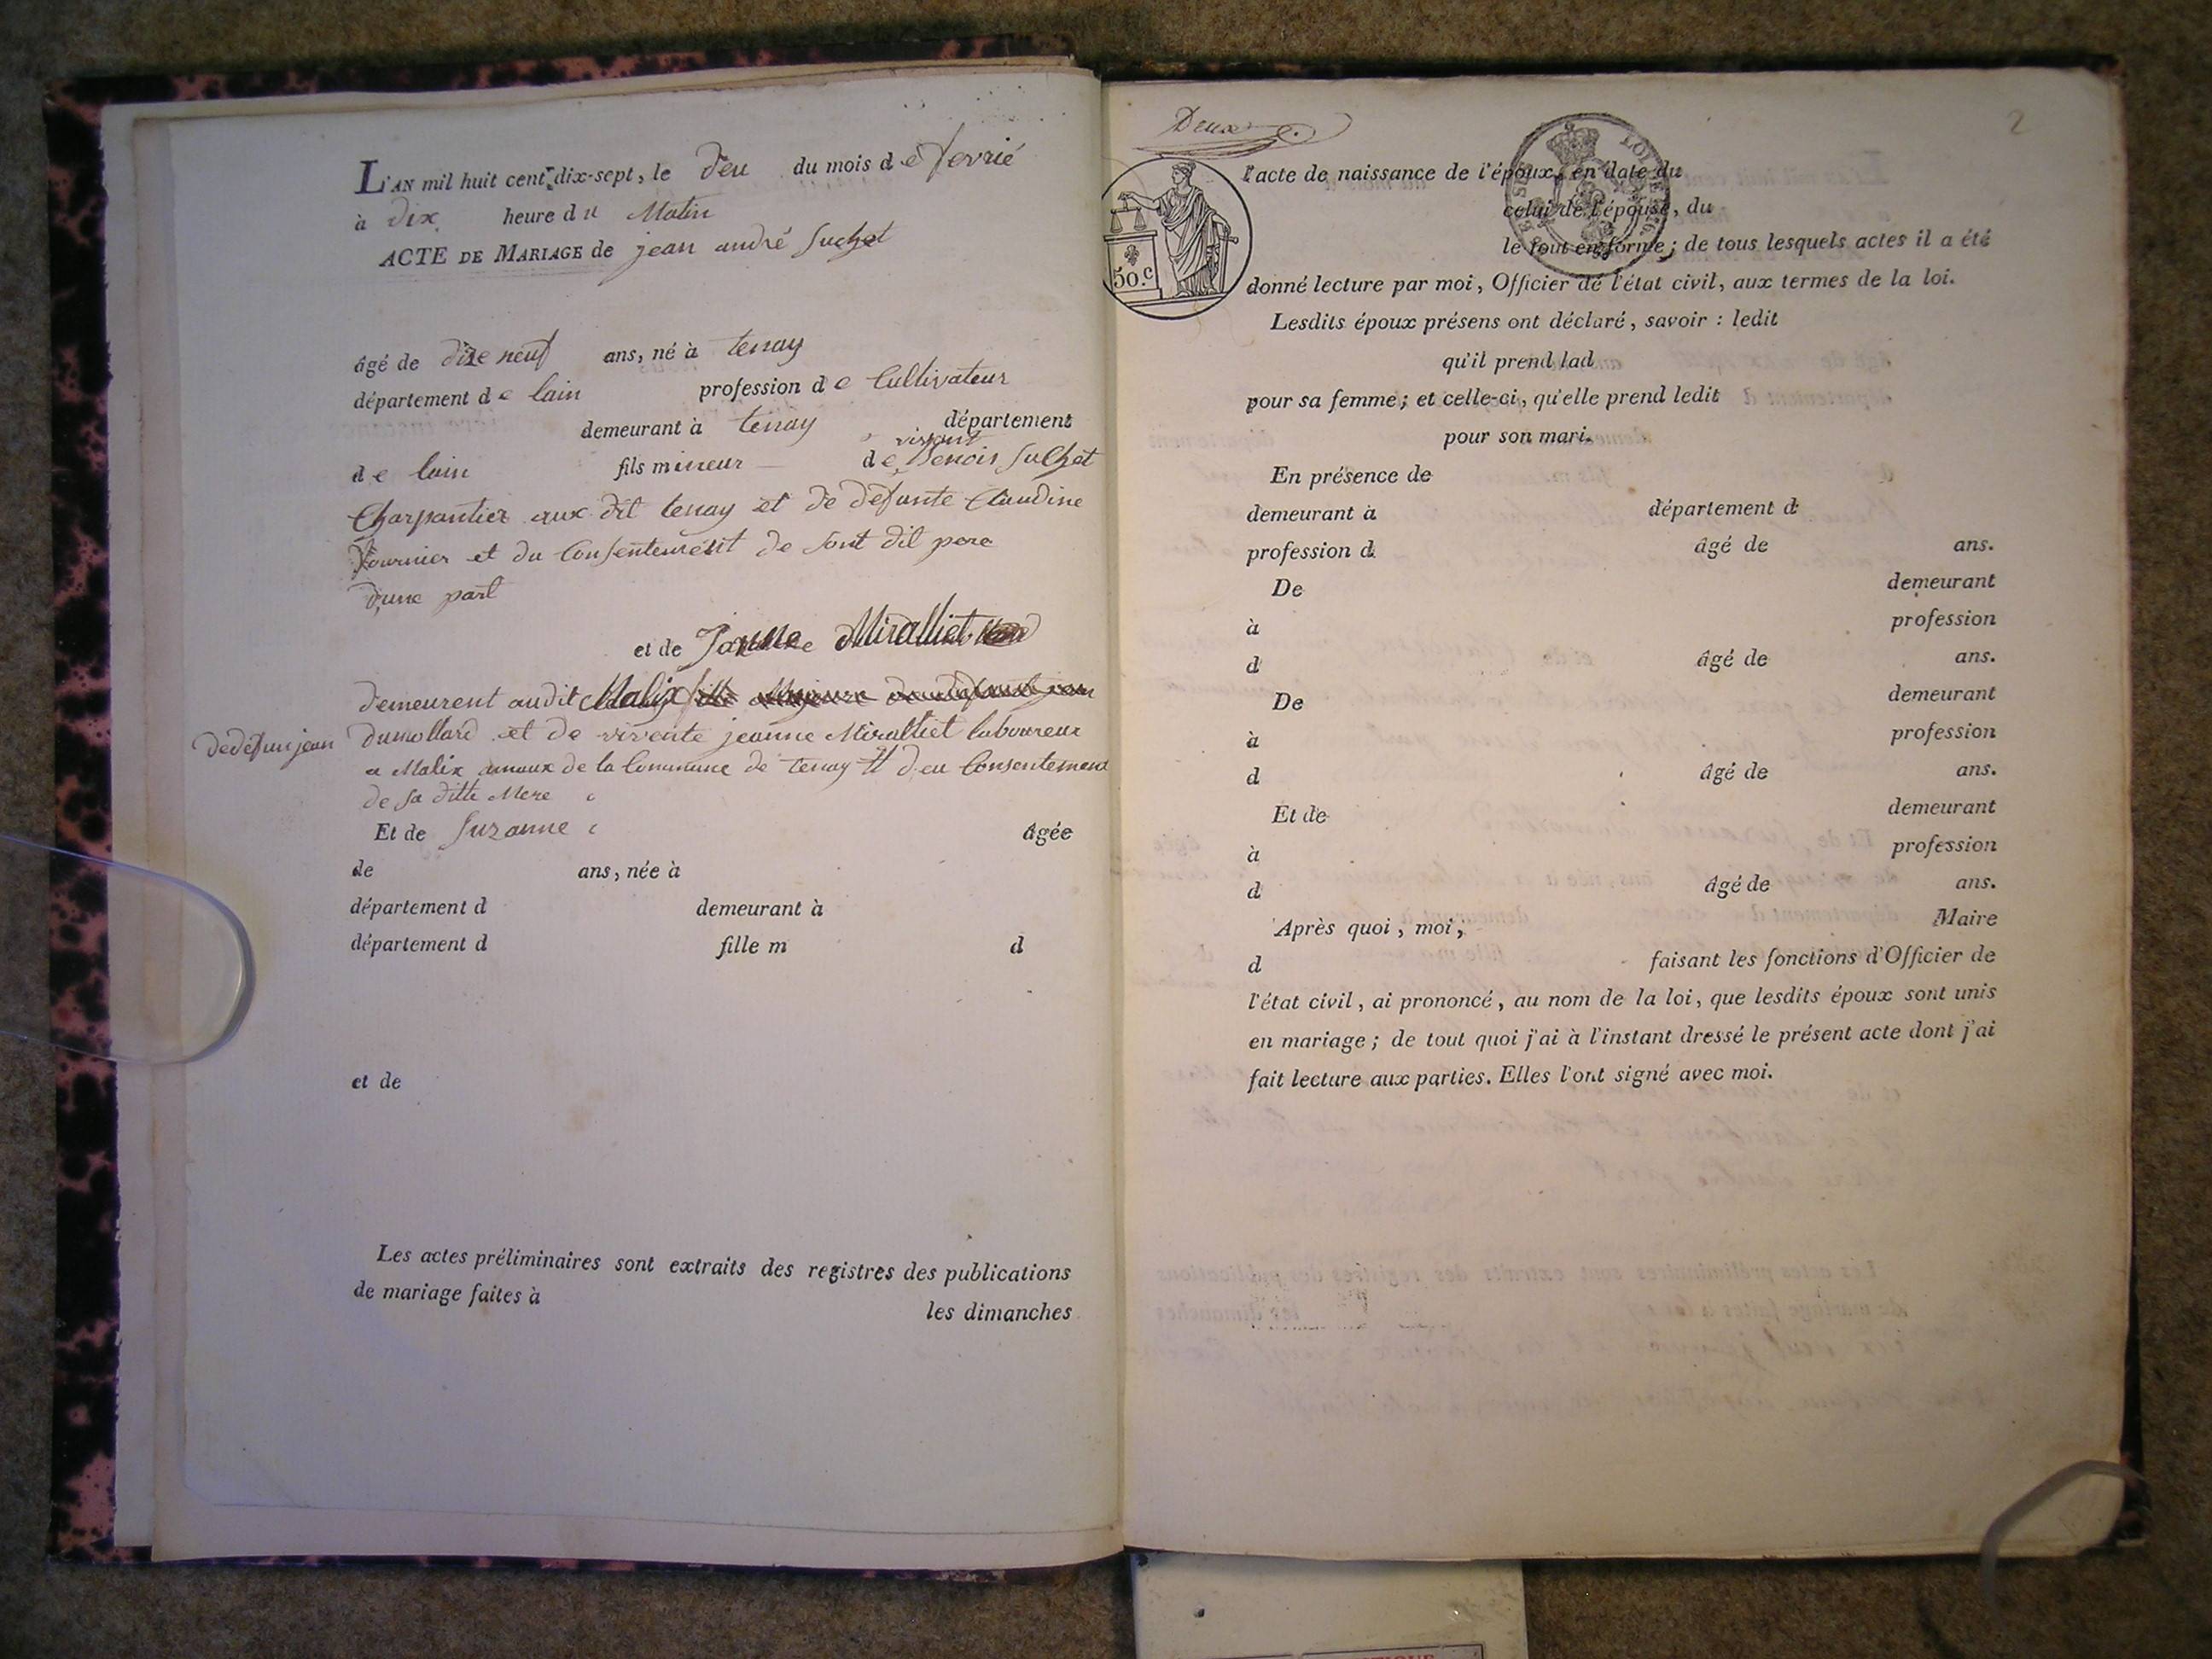 L'AN mil huit cent dix-sept, le deu du mois de fevrié
à dix heure du Matin
ACTE DE MARIAGE de jean andré Suchet
âgé de dixe neuf ans, né à tenay
département de lain profession de Cultivateur
demeurant à tenay département
vivant
de lain fils mineur de Benois Suchet
Charpantier aux dit tenay et de defunte Claudine
fournier et du Consentement de sont dit pere
d'une part
et de Jeanne Miralliet
demeurent audit Malix fille Majeure
dedefun jean dumollard et de vivente jeanne Miralliet laboureur
a Malix amaux de la Commune de tenay et d'eu Consentement
de sa ditte Mere
Et de Suzanne âgée
de ans, née à
département d demeurant à
département d fille m d
et de
Les actes préliminaires sont extraits des registres des publications
de mariage faites à
les dimanches
Deux
2
50.c
l'acte de naissance de l'époux, en date du
celui de l'épouse, du
le tout en forme ; de tous lesquels actes il a été
donné lecture par moi, Officier de l'état civil, aux termes de la loi.
Lesdits époux présens ont déclaré, savoir : ledit
qu'il prend lad
pour sa femme ; et celle-ci, qu'elle prend ledit
pour son mari.
En présence de
demeurant à département d
profession d âgé de ans.
De demeurant
à profession
d âgé de ans.
De demeurant
à profession
d âgé de ans.
Et de demeurant
à profession
d âgé de ans.
Après quoi, moi, Maire
d faisant les fonctions d'Officier de
l'état civil, ai prononcé, au nom de la loi, que lesdits époux sont unis
en mariage ; de tout quoi j'ai à l'instant dressé le présent acte dont j'ai
fait lecture aux parties. Elles l'ont signé avec moi.